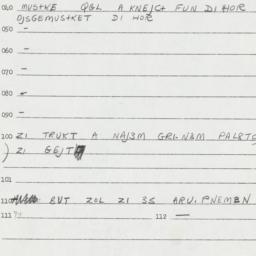 040 MUSTKE QGL A KNEJCH FUN DI HOR
OJSGEMUSTKET DI HOR
050 —
060 —
070 —
080 —
090 —
100 ZI TRUKT A NAJ3M GRI.N3M PALRTO
) ZI GEJT
101
110 BUT ZOL ZI 3S ARU.PNEM3N
111 112 —